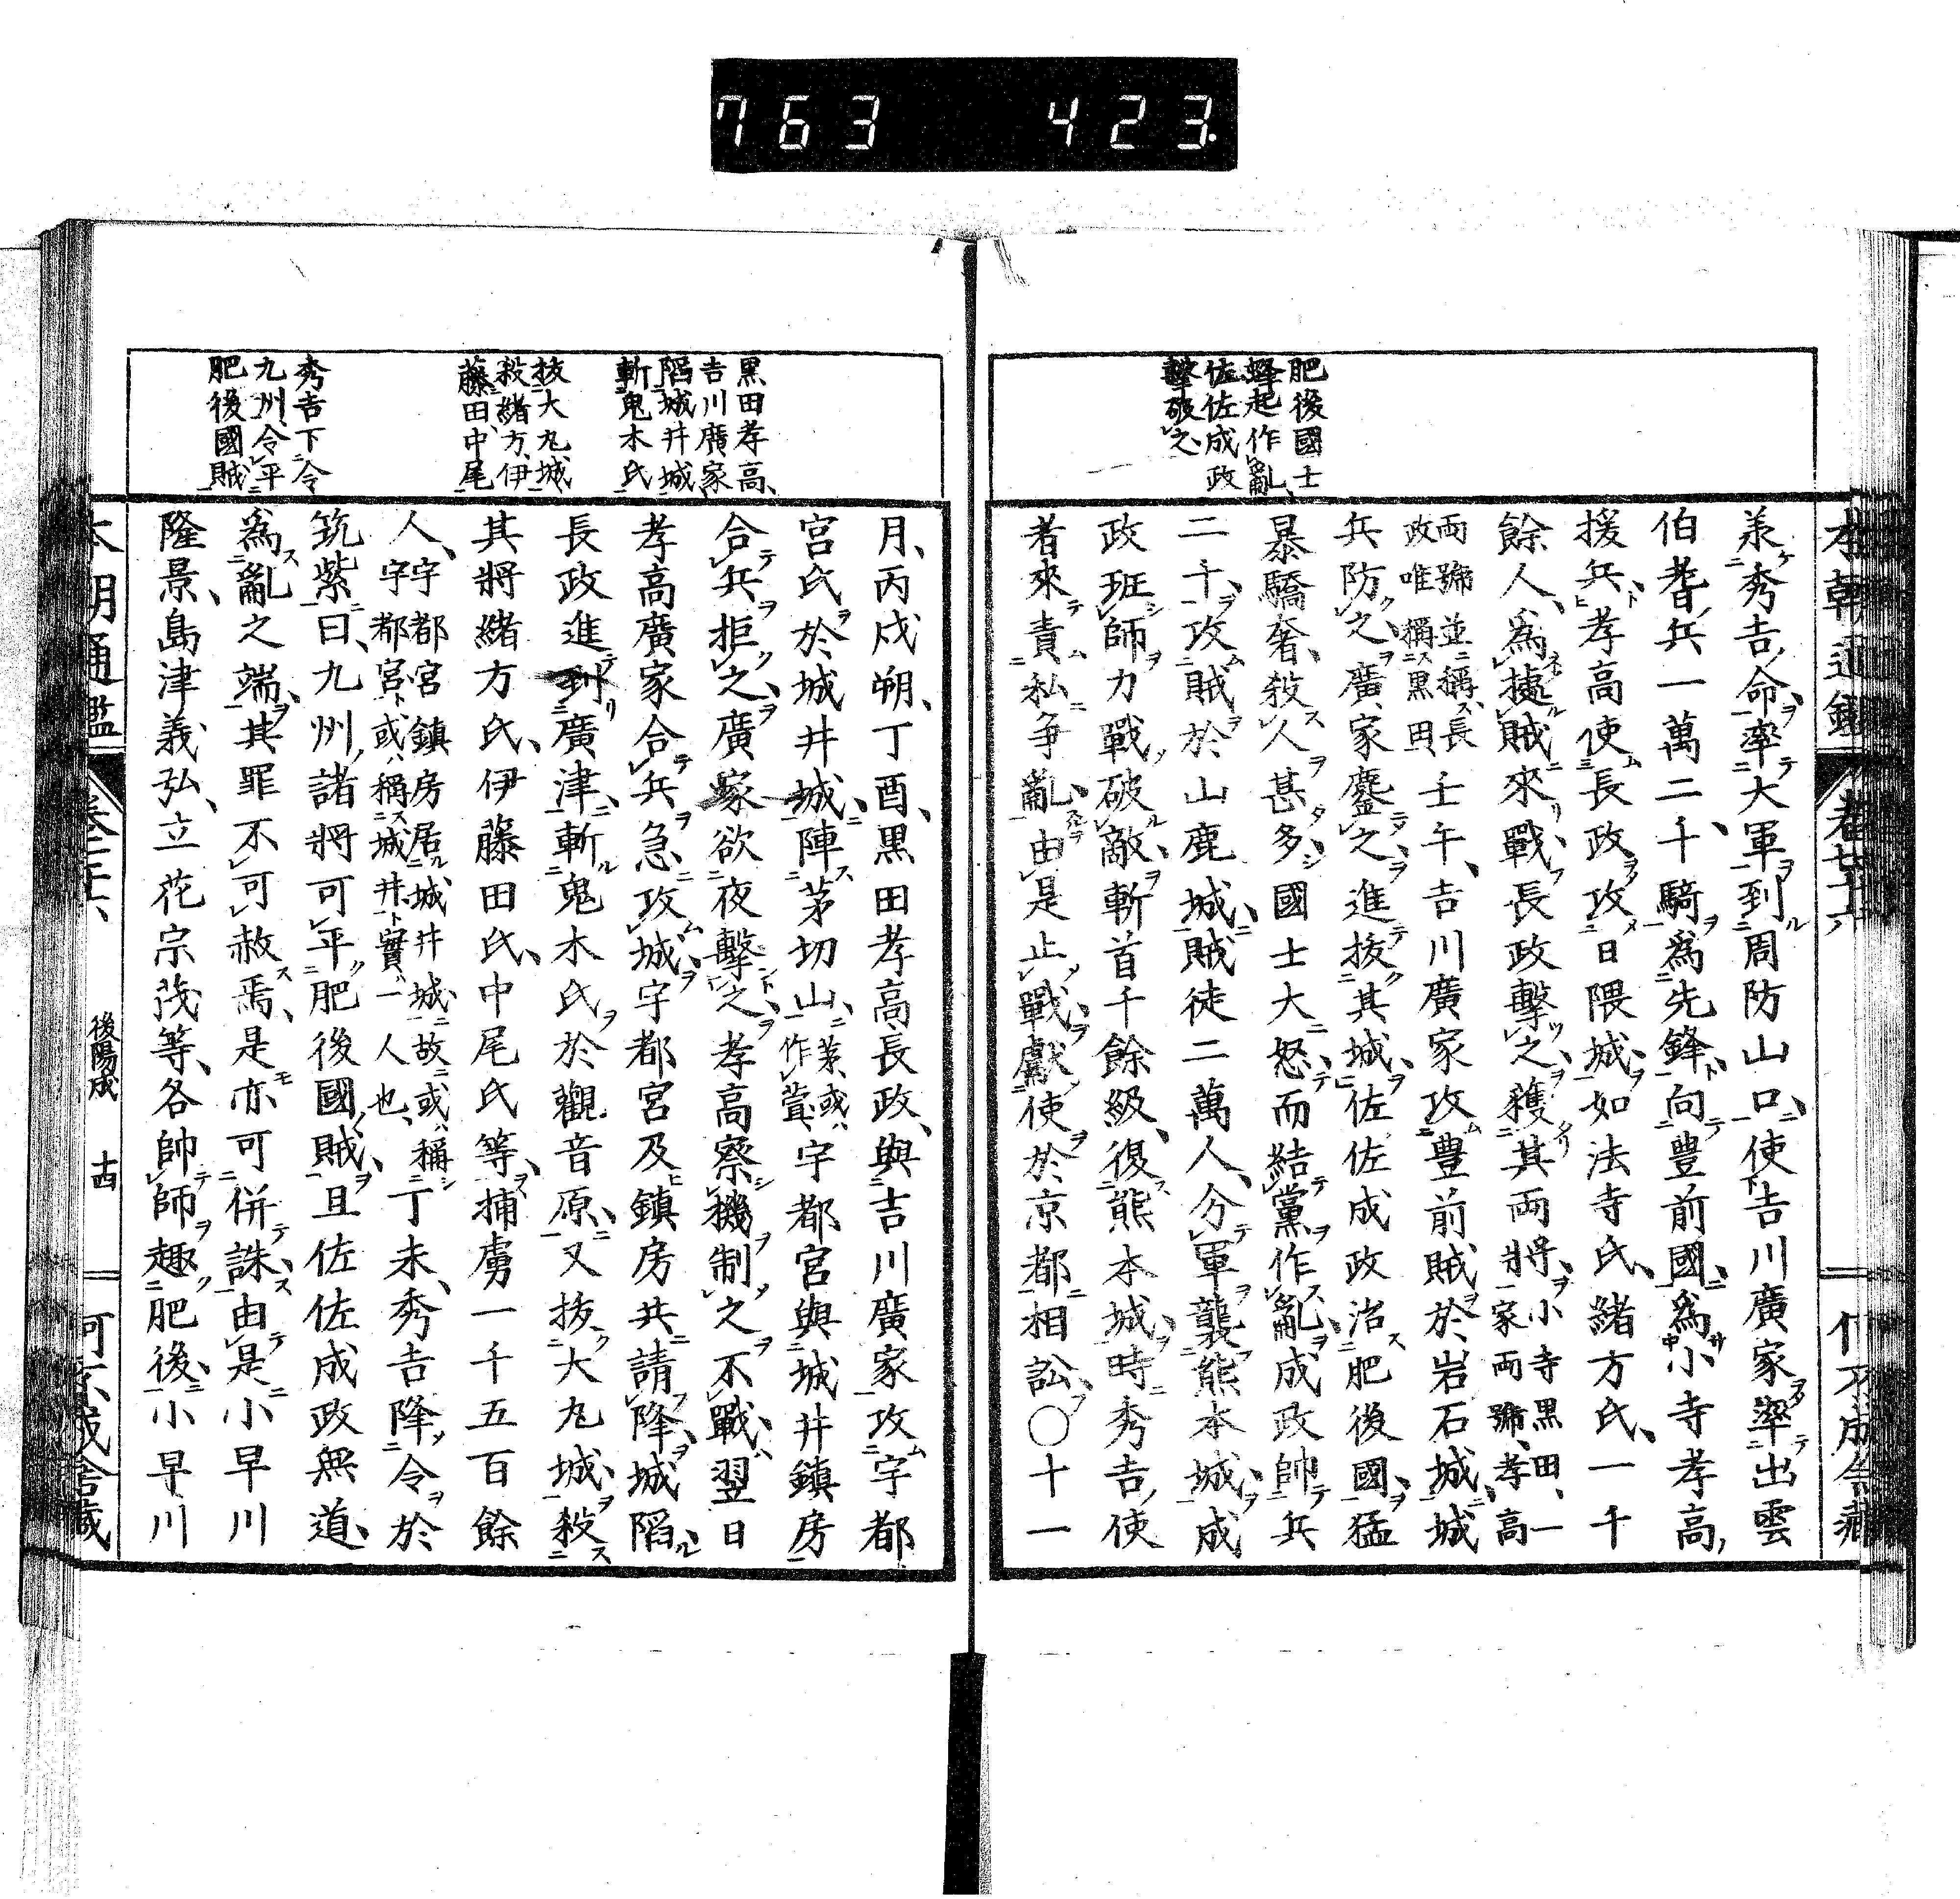 763 423.
本朝通鑑 卷七十六
肥後國士
蜂起作亂
佐佐成政
擊破之
承秀吉命率大軍到周防山口使吉川廣家率出雲
伯耆兵一萬二千騎爲先鋒向豊前國爲小寺孝高
援兵孝高使長政攻日隈城如法寺氏緒方氏一千
餘人爲援賊來戰長政擊之獲其両將小寺黒田一
家両號孝高
両號並稱長
政唯稱黒田壬午吉川廣家攻豊前賊於岩石城城
兵防之廣家鏖之進拔其城佐佐成政治肥後國猛
暴驕奢殺人甚多國士大怒而結黨作亂成政帥兵
二千攻賊於山鹿城賊徒二萬人分軍襲熊本城成
政班師力戰破敵斬首千餘級復熊本城時秀吉使
者來責私爭亂由是止戰獻使於京都相訟○十一
黒田孝高
吉川廣家
陷城井城
斬鬼木氏
拔大丸城
殺緒方伊
藤田中尾
秀吉下令
九州令平
肥後國賊
月丙戌朔丁酉黒田孝高長政與吉川廣家攻宇都
宮氏於城井城陣茅切山茅或
作萱宇都宮與城井鎮房
合兵拒之廣家欲夜擊之孝高察機制之不戰翌日
孝高廣家合兵急攻城宇都宮及鎮房共請降城陷
長政進到廣津斬鬼木氏於觀音原又拔大丸城殺
其將緒方氏伊藤田氏中尾氏等捕虜一千五百餘
人宇都宮鎮房居城井城故或稱
宇都宮或稱城井實一人也丁未秀吉降令於
筑紫曰九州諸將可平肥後國賊且佐佐成政無道
爲亂之端其罪不可赦焉是亦可併誅由是小早川
隆景島津義弘立花宗茂等各帥師趣肥後小早川
後陽成 十四